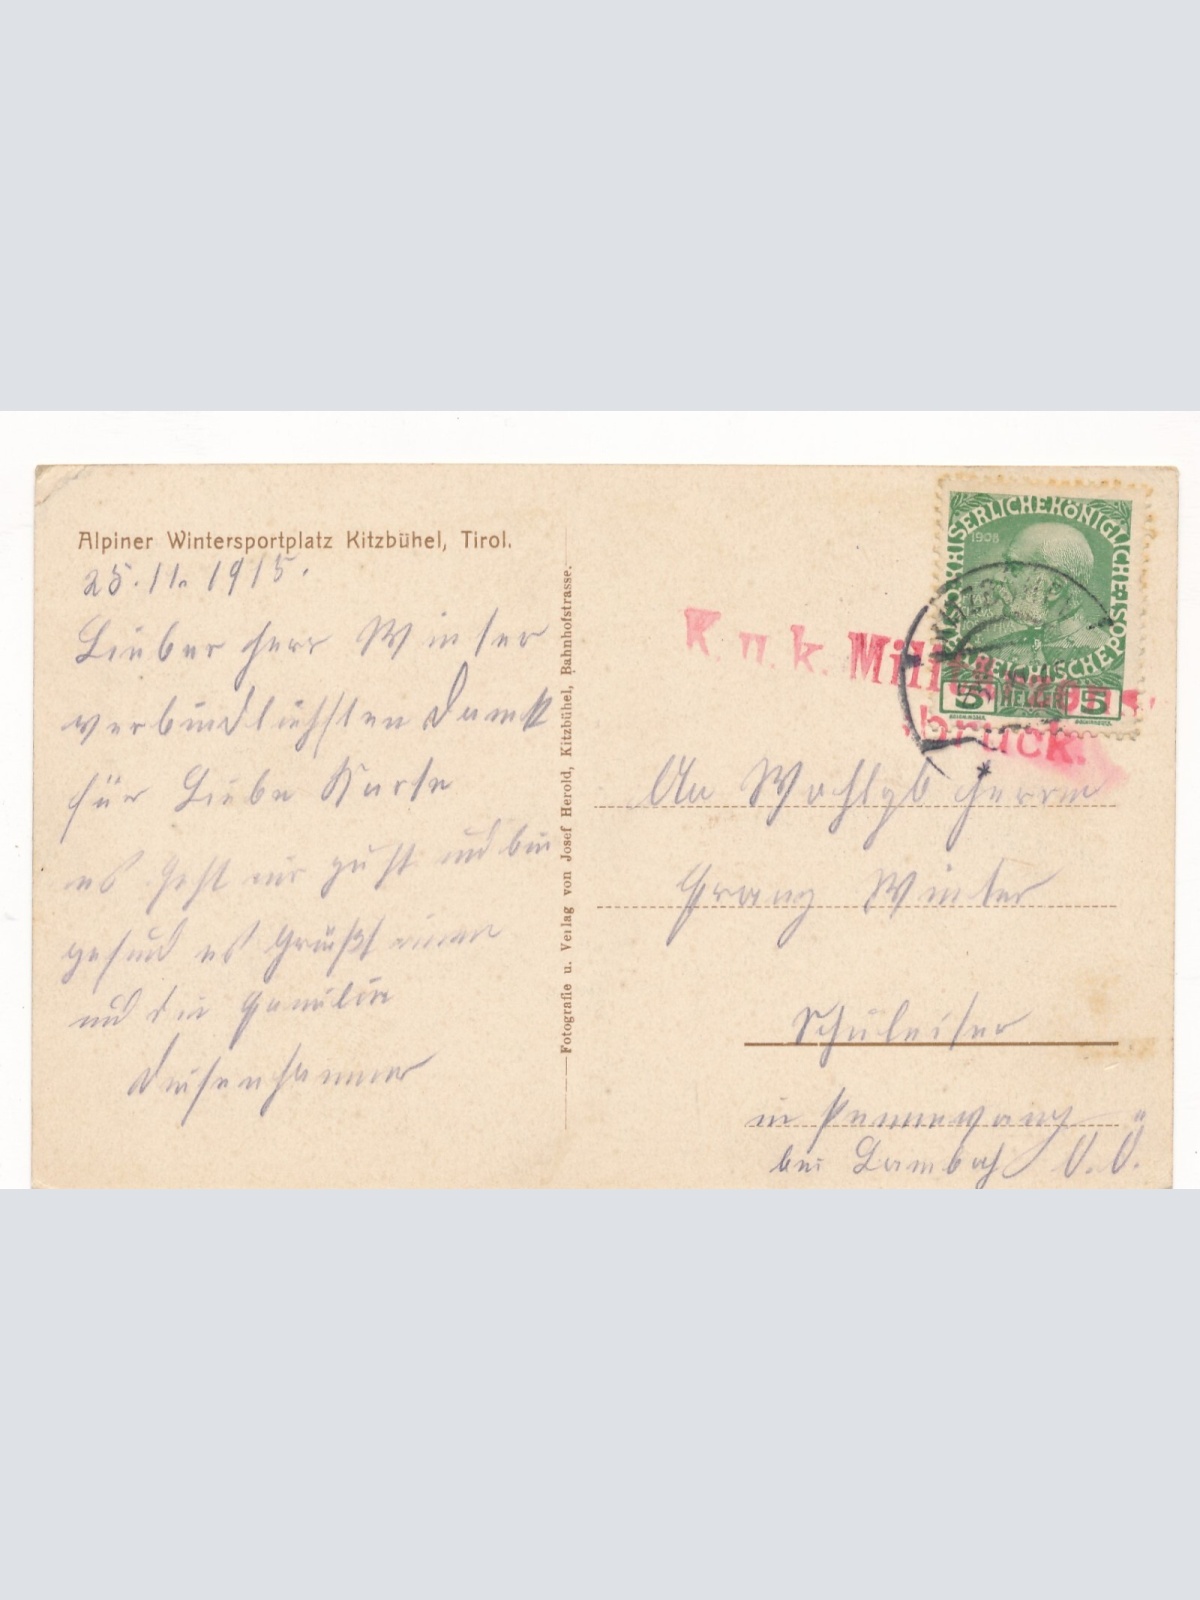 Alpiner Wintersportplatz Kitzbühel, Tirol.
25.11.1915.
Lieber Herr Winter
verbindlichsten Dank
für Liebe Karte
es geht mir gutt und bin
gesund es Grüßt einen
und die Familie
Fotografie u. Verlag von Josef Herold, Kitzbühel, Bahnhofstrasse.
KAISERLICHE KÖNIGLICHE ÖSTERREICHISCHE POST
1908
5 HELLER 5
K. u. k. Mili
bruck.
An Wohlgb Herrn
Franz Winter
Schulleiter
in Pennewang
bei Lambach O.Ö.